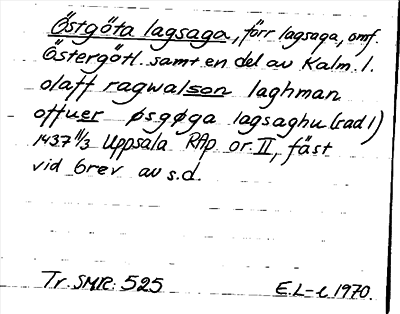 Östgöta lagsaga, förr lagsaga, omf.
Östergötl. samt en del av Kalm. l.
olaff ragwalson laghman
offuer øsgøga lagsaghu (rad 1)
1437 11/3 Uppsala RAp or. II, fäst
vid brev av s.d.
Tr. SMR: 525 E.L-e 1970.